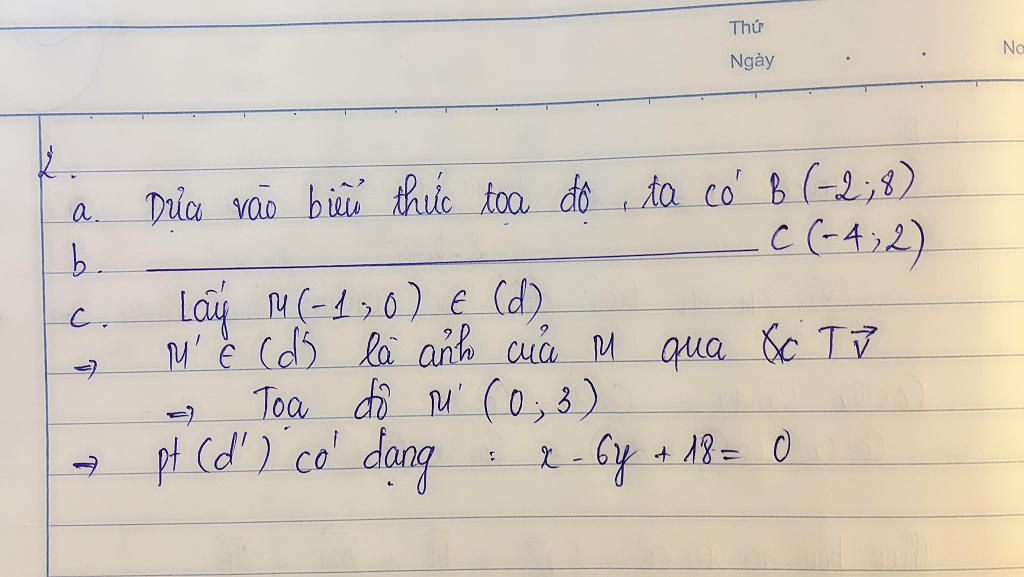 Thứ
Ngày . .
No
2.
a. Dựa vào biểu thức tọa độ, ta có B (-2;8)
b. ____________________ C (-4;2)
c. Lấy M(-1;0) ∈ (d)
⇒ M' ∈ (d') là ảnh của M qua T v⃗
⇒ Tọa độ M' (0;3)
⇒ pt (d') có dạng : x - 6y + 18 = 0